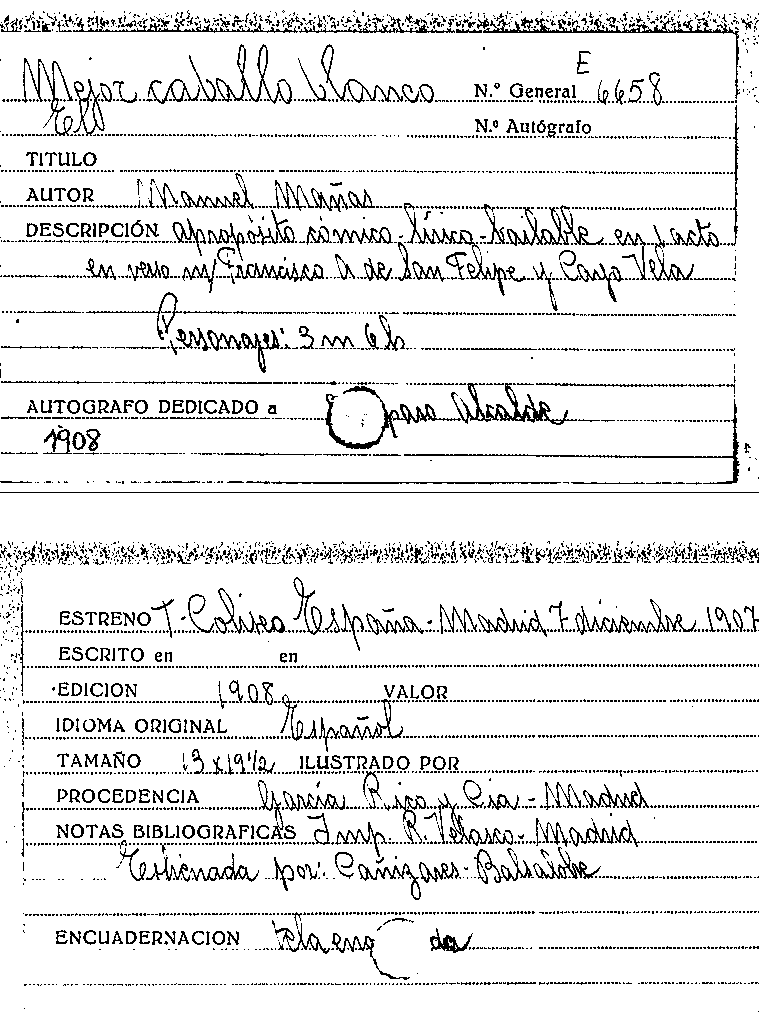 E
Mejor caballo blanco N.º General 6658
El N.º Autógrafo
TITULO
AUTOR Manuel Mañas
DESCRIPCIÓN apropósito cómico-lírico-bailable en 1 acto
en verso m/ Francisco A de San Felipe y Cayo Vela
Personajes: 3 m 6 h
AUTOGRAFO DEDICADO a paso Alcalde
1908
ESTRENO T- Coliseo España - Madrid 7 diciembre 1907
ESCRITO en en
EDICION 1908 VALOR
IDIOMA ORIGINAL Español
TAMAÑO 13 x 19 1/2 ILUSTRADO POR
PROCEDENCIA García Rico y Cia - Madrid
NOTAS BIBLIOGRAFICAS Imp. R. Velasco - Madrid
Estrenada por: Cañizares - Balsalobre
ENCUADERNACION tela eng da